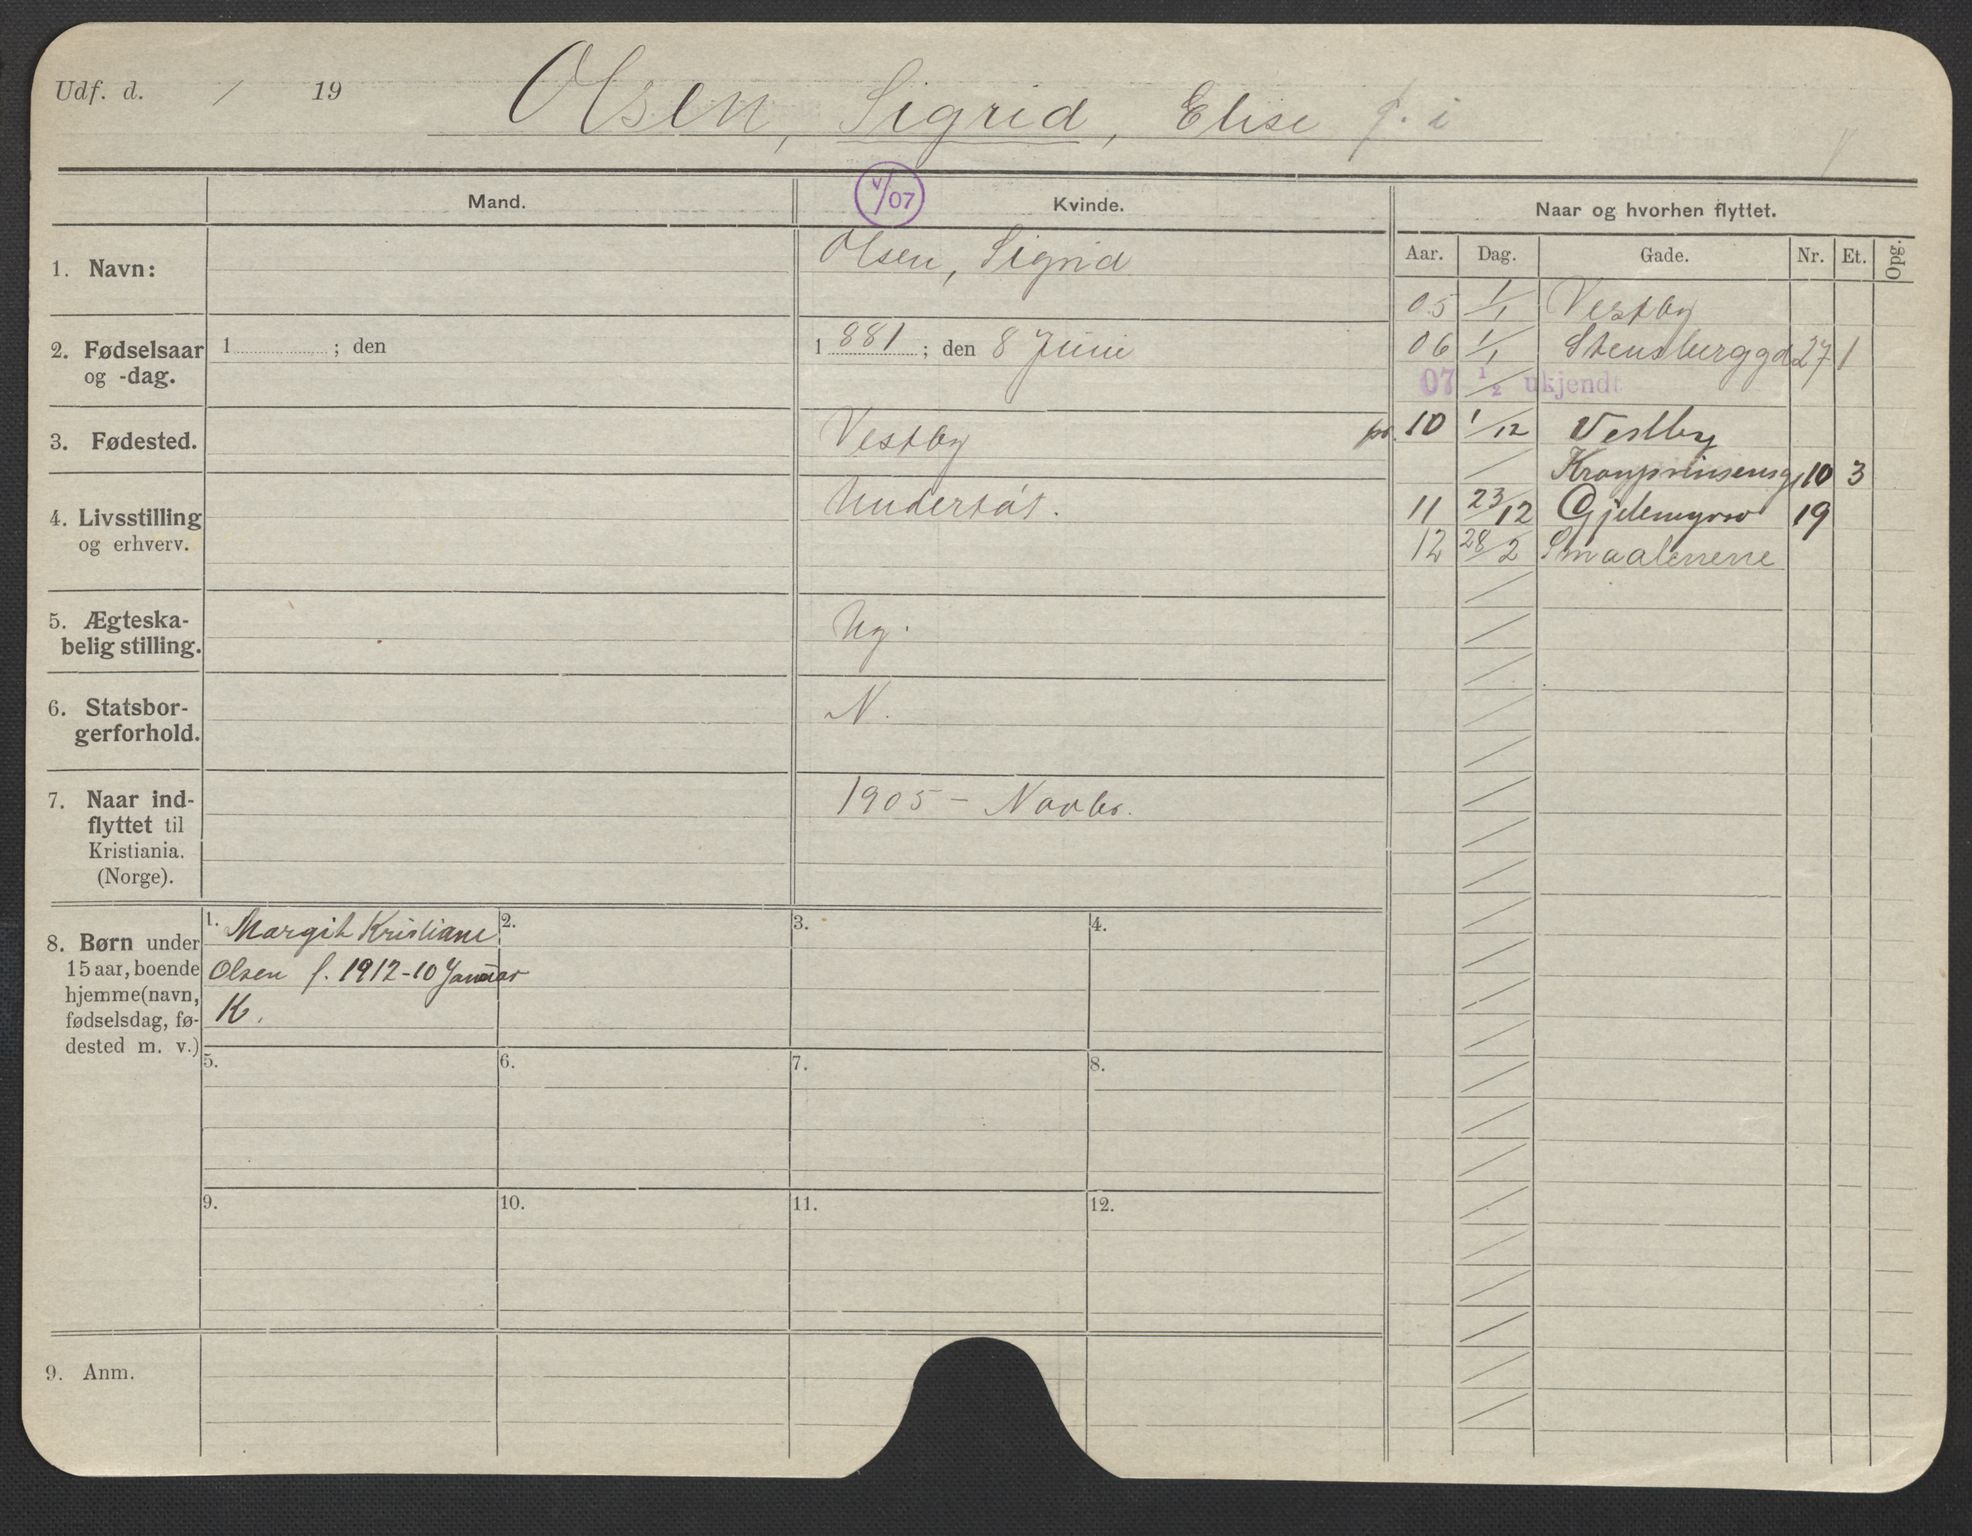 Udf. d. / 19
Olsen, Sigrid, Elise f. i
Mand.
V/07
Kvinde.
Naar og hvorhen flyttet.
Aar. Dag. Gade. Nr. Et. Opg.
1. Navn:
Olsen, Sigrid
2. Fødselsaar
og -dag.
1 ; den
1881; den 8 Juni
3. Fødested.
Vestby
4. Livsstilling
og erhverv.
Understøt.
5. Ægteska-
belig stilling.
Ug.
6. Statsbor-
gerforhold.
N.
7. Naar ind-
flyttet til
Kristiania.
(Norge).
1905 - Novbr.
05 1/1 Vestby
06 1/1 Stensberggd 27 1
07 1/2 ukjendt
pr. 10 1/12 Vestby
/ Kronprinsensg 10 3
11 23/12 Gjetemyrsv 19
12 28/2 Smaalenene
8. Børn under
15 aar, boende
hjemme (navn,
fødselsdag, fø-
dested m. v.)
1. Margit Kristiane
Olsen f. 1912-10 Januar
K.
2.
3.
4.
5.
6.
7.
8.
9.
10.
11.
12.
9. Anm.